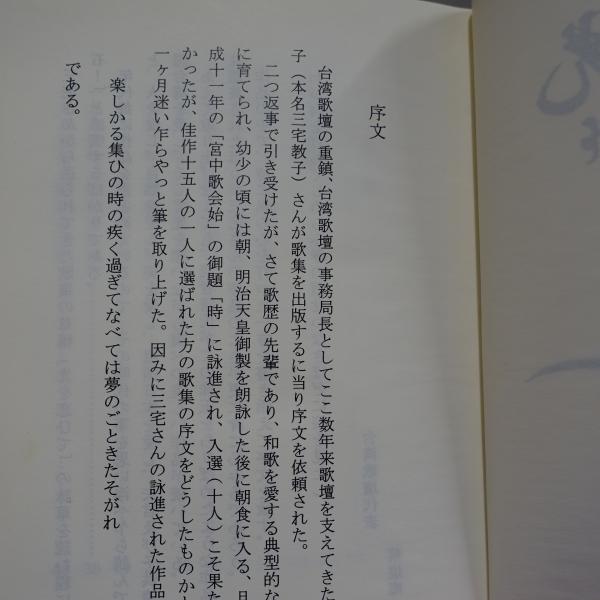 序文
台湾歌壇の重鎮、台湾歌壇の事務局長としてここ数年来歌壇を支えてきた
子(本名三宅教子)さんが歌集を出版するに当り序文を依頼された。
二つ返事で引き受けたが、さて歌歴の先輩であり、和歌を愛する典型的な
に育てられ、幼少の頃には朝、明治天皇御製を朗詠した後に朝食に入る、
成十一年の「宮中歌会始」の御題「時」に詠進され、入選(十人)こそ果た
かったが、佳作十五人の一人に選ばれた方の歌集の序文をどうしたものか
一ヶ月迷い乍らやっと筆を取り上げた。因みに三宅さんの詠進された作品
楽しかる集ひの時の疾く過ぎてなべては夢のごときたそがれ
である。